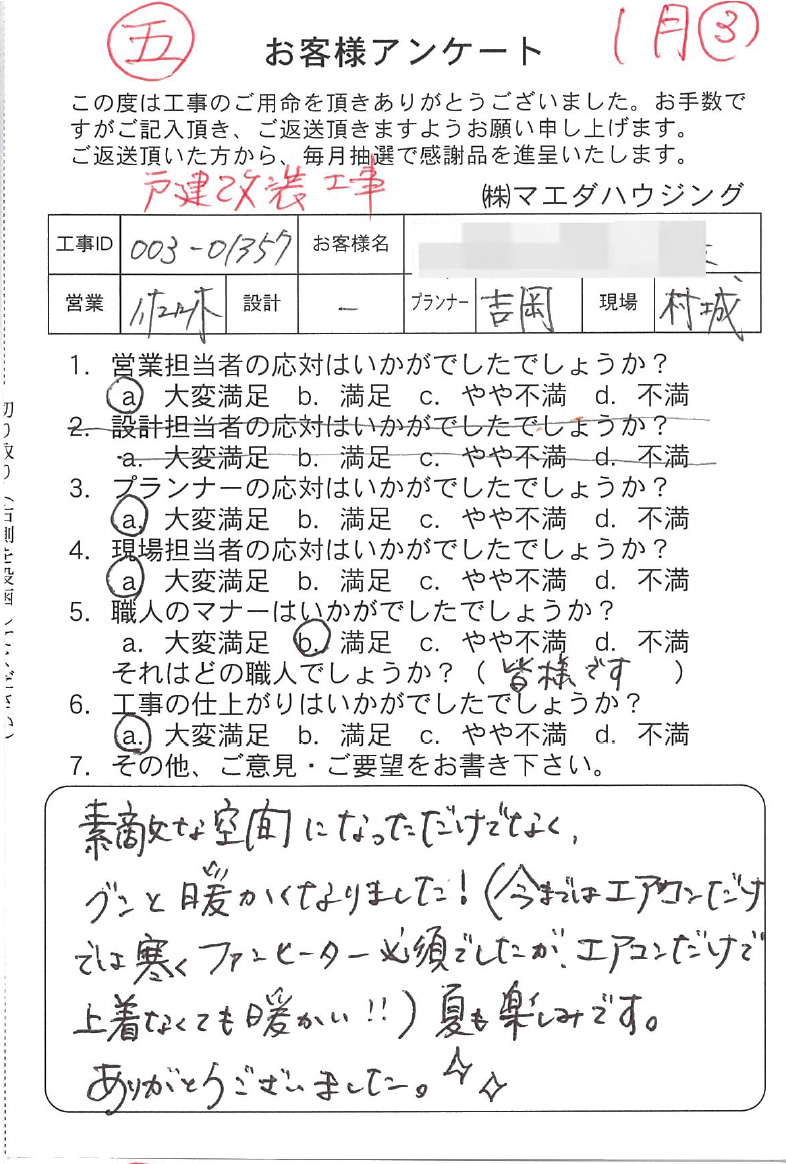 五
お客様アンケート
1月③
この度は工事のご用命を頂きありがとうございました。お手数で
すがご記入頂き、ご返送頂きますようお願い申し上げます。
ご返送頂いた方から、毎月抽選で感謝品を進呈いたします。
戸建改装工事
㈱マエダハウジング
工事ID 003-01357 お客様名
営業 設計 - プランナー 吉岡 現場 村城
1. 営業担当者の応対はいかがでしたでしょうか?
a 大変満足 b. 満足 c. やや不満 d. 不満
2. 設計担当者の応対はいかがでしたでしょうか?
a. 大変満足 b. 満足 c. やや不満 d. 不満
3. プランナーの応対はいかがでしたでしょうか?
a. 大変満足 b. 満足 c. やや不満 d. 不満
4. 現場担当者の応対はいかがでしたでしょうか?
a 大変満足 b. 満足 c. やや不満 d. 不満
5. 職人のマナーはいかがでしたでしょうか?
a. 大変満足 b. 満足 c. やや不満 d. 不満
それはどの職人でしょうか?( 皆様です )
6. 工事の仕上がりはいかがでしたでしょうか?
a. 大変満足 b. 満足 c. やや不満 d. 不満
7. その他、ご意見・ご要望をお書き下さい。
素敵な空間になっただけでなく、
グンと暖かくなりました!(今まではエアコンだけ
では寒くファンヒーター必須でしたが、エアコンだけで
上着なくても暖かい!!)夏も楽しみです。
ありがとうございました。